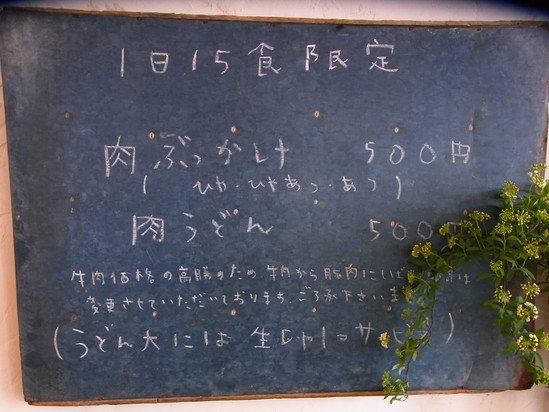 1日15食限定
肉ぶっかけ 500円
(ひや・ひやあつ・あつ)
肉うどん 500円
牛肉価格の高騰のため牛肉から豚肉にしば
変更させていただいております。ご了承下さいま
(うどん大には生